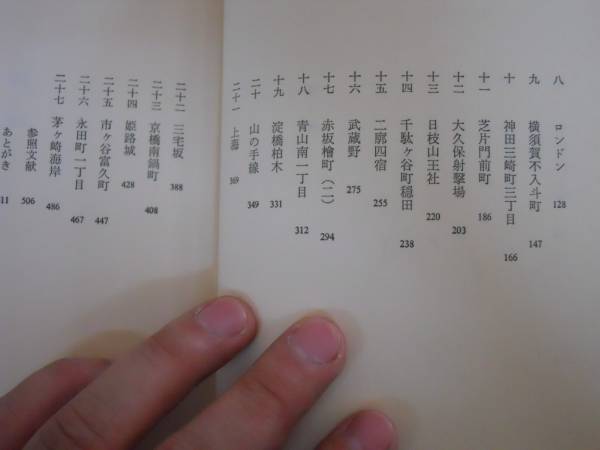 八 ロンドン 128
九 横須賀不入斗町 147
十 神田三崎町三丁目 166
十一 芝片門前町 186
十二 大久保射撃場 203
十三 日枝山王社 220
十四 千駄ヶ谷町穏田 238
十五 二廓四宿 255
十六 武蔵野 275
十七 赤坂檜町(二) 294
十八 青山南一丁目 312
十九 淀橋柏木 331
二十 山の手線 349
二十一 上海 369
二十二 三宅坂 388
二十三 京橋南鍋町 408
二十四 姫路城 428
二十五 市ヶ谷富久町 447
二十六 永田町一丁目 467
二十七 茅ヶ崎海岸 486
参照文献 506
あとがき 11